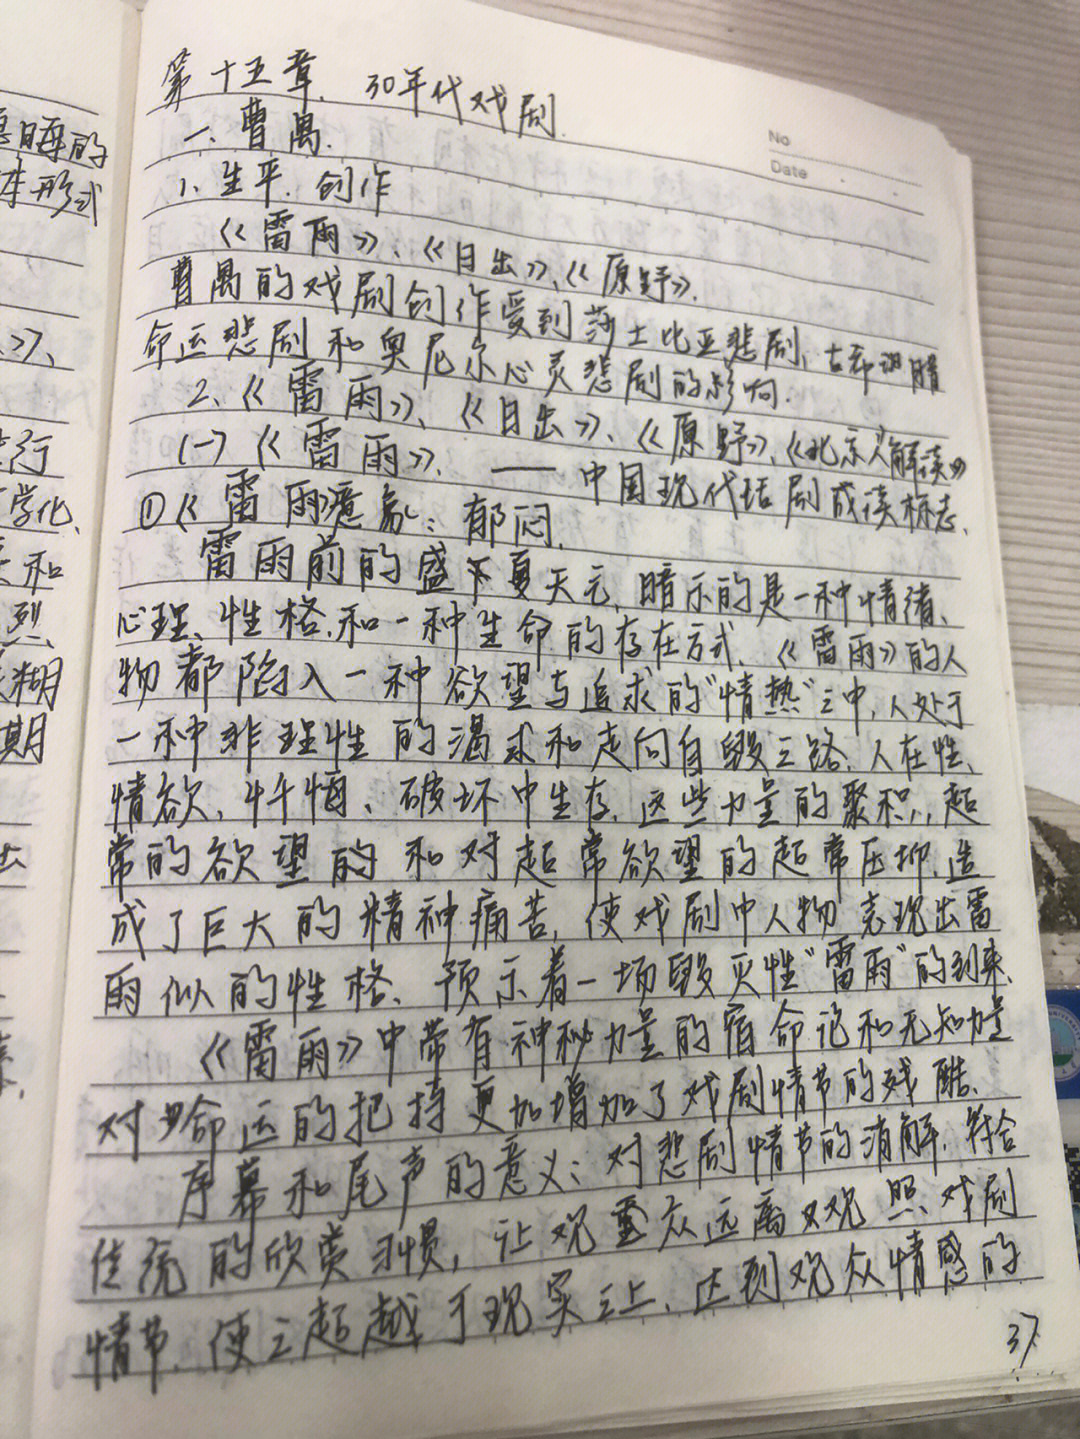 第十五章、30年代戏剧.
No
Date
一、曹禺.
1、生平、创作
《雷雨》、《日出》、《原野》.
曹禺的戏剧创作受到莎士比亚悲剧、古希腊
命运悲剧和奥尼尔心灵悲剧的影响.
2、《雷雨》、《日出》、《原野》、《北京人》解读
(一)《雷雨》. —— 中国现代话剧成读标志.
①《雷雨》意象: 郁闷.
雷雨前的盛夏天气、暗示的是一种情绪、
心理、性格.和一种生命的存在方式、《雷雨》的人
物都陷入一种欲望与追求的"情热"之中,人处于
一种非理性的渴求和走向自毁之路、人在性、
情欲、忏悔、破坏中生存,这些力量的聚积,超
常的欲望的和对超常欲望的超常压抑,造
成了巨大的精神痛苦,使戏剧中人物表现出雷
雨似的性格、预示着一场毁灭性"雷雨"的到来.
《雷雨》中带有神秘力量的宿命论和无知力量
对命运的把持更加增加了戏剧情节的残酷.
序幕和尾声的意义: 对悲剧情节的消解,符合
传统的欣赏习惯, 让观众远离观照戏剧
情节, 使之超越于现实之上、达到观众情感的
37
晦的
本形式
》、
行
学化,
和
烈、
糊
期